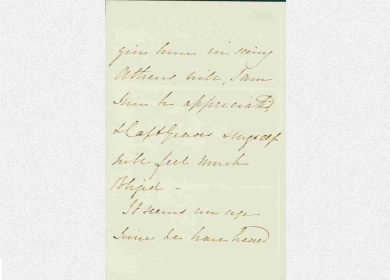 give him in seeing
Athens will, I am
sure be appreciated,
& Capt Graves & myself
will feel much
obliged -
It seems an age
since we have heard